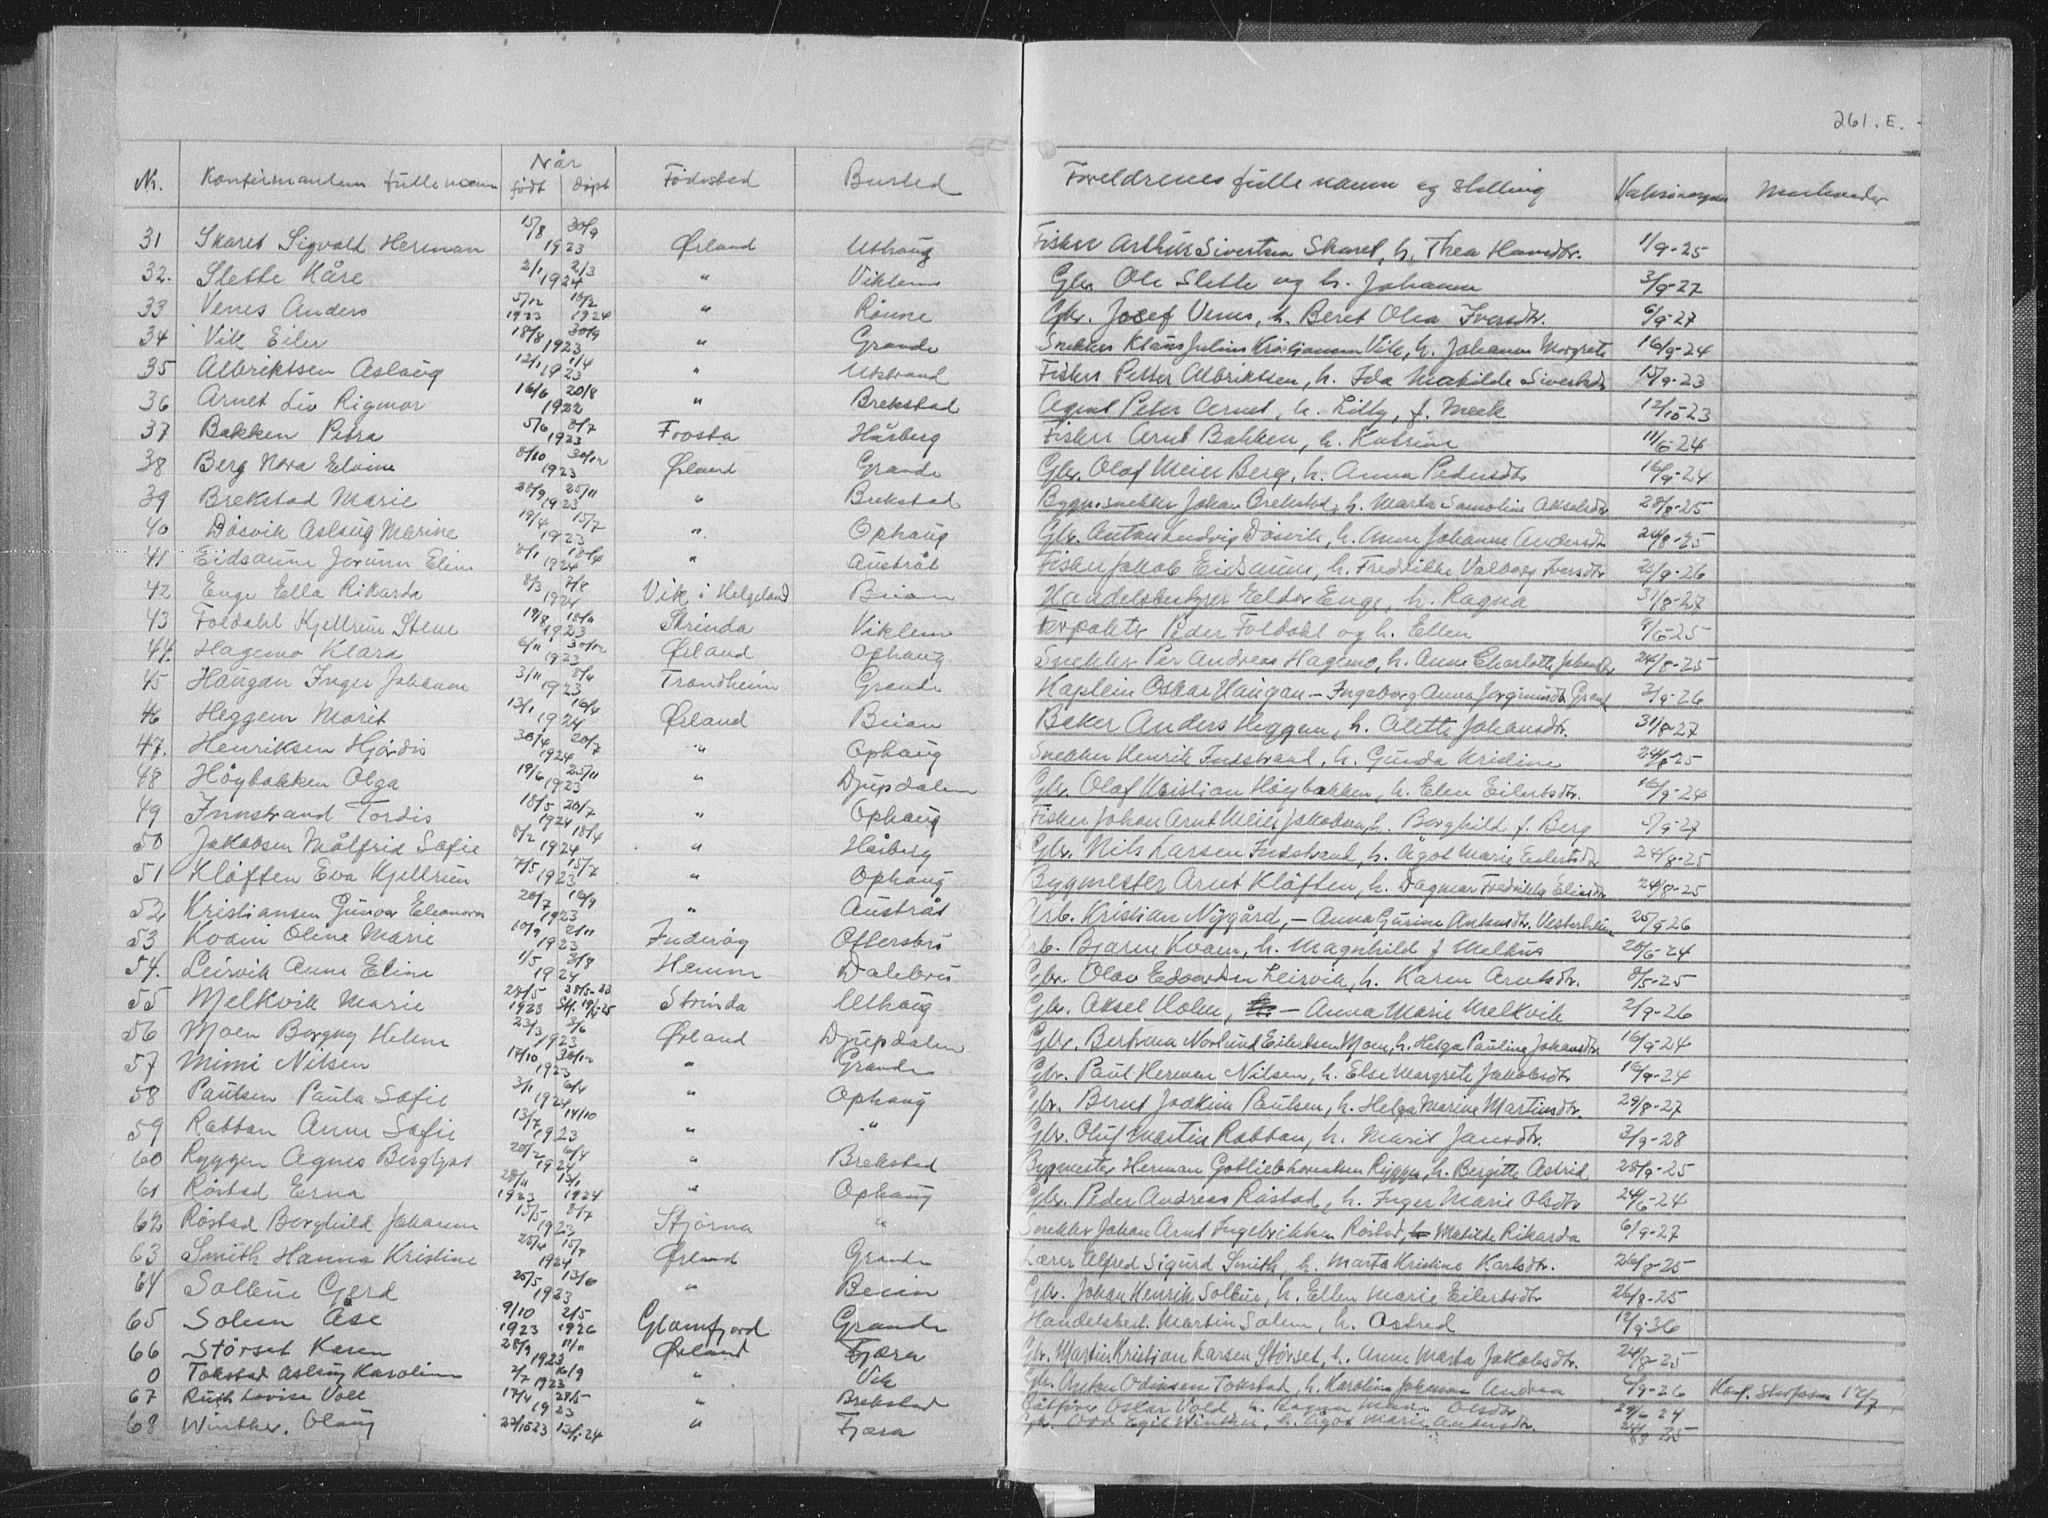 261. E.
Nr. Konfirmantens fulle navn Når født døpt Fødested Bosted Foreldrenes fulle navn og stilling Vaksinasjon Merknader
31 Skaret Sigvald Herman 15/8 30/9 1923 Ørland Uthaug Fisker Arthur Sivertsen Skaret, h. Thea Hansdtr. 1/9-25
32. Slette Kåre 2/1 2/3 1924 " Viklem Gbr. Ole Slette og h. Johanna 3/9-27
33 Venes Anders 5/12 1923 10/2 1924 " Rønne Gbr. Josef Venes, h. Beret Olea Iversdtr. 6/9-27
34 Vik Eiler 18/8 30/9 1923 " Grande Snekker Klaus Julius Kristiansen Vik, h. Johanna Margrete 16/9-24
35 Albriktsen Aslaug 12/1 1/4 1923 " Utstrand Fisker Petter Albriktsen, h. Ida Matilde Sivertsdtr 15/9-23
36 Arnet Liv Rigmor 16/6 20/8 1922 " Brekstad Agent Peter Arnet, h. Lilly, f. Meek 12/10-23
37 Bakken Petra 5/6 8/7 1923 Frosta Hårberg Fisker Arnt Bakken, h. Katrine 11/6-24
38 Berg Nora Elvine 8/10 30/12 1923 Ørland Grande Gbr. Olaf Meier Berg, h. Anna Pedersdtr 16/9-24
39 Brekstad Marie 28/9 25/11 1923 " Brekstad Bygn.snekker Johan Brekstad, h. Marta Samoline Akselsdtr 28/8-25
40 Døsvik Aslaug Marine 19/4 15/7 1923 " Ophaug Gbr. Anton Ludvig Døsvik, h. Anne Johanna Andersdtr 24/8-25
41 Eidsaune Jorunn Elin 8/1 18/4 1924 " Austråt Fisker Jakob Eidsaune, h. Fredrikke Valborg Iversdtr 25/9-26
42 Enge Ella Rikarda 8/3 3/8 1924 Vik i Helgeland Beian Handelsbestyrer Eldor Enge, h. Ragna 31/8-27
43 Foldahl Kjellrun Stene 19/8 18/11 1923 Strinda Viklem Forpakter Peder Foldahl og h. Ellen 8/6-25
44. Hagemo Klara 6/11 30/12 1923 Ørland Ophaug Snekker Per Andreas Hagemo, h. Anne Charlotte Johansdtr 24/8-25
45 Haugan Inger Johanne 3/11 8/4 1923 Trondheim Grande Kaptein Oskar Haugan – Ingeborg Anna Jørginusdtr Grande 2/9-26
46 Heggem Marit 13/1 16/4 1924 Ørland Beian Baker Anders Heggem, h. Alette Johansdtr. 31/8-27
47. Henriksen Hjørdis 30/4 20/7 1924 " Ophaug Snekker Henrik Indstrand, h. Gunda Kristine 24/8-25
48 Høybakken Olga 19/6 25/11 1923 " Djupdalen Gbr. Olaf Kristian Høybakken, h. Elen Eilertsdtr. 16/9-24
49 Innstrand Tordis 18/5 20/7 1924 " Ophaug Fisker Johan Arnt Meier Jakobsen, h. Borghild f. Berg 5/9-27
50 Jakobsen Målfrid Sofie 8/2 18/4 1924 " Hårberg Gbr. Nils Larsen Indstrand, h. Ågot Marie Eilertsdtr 24/8-25
51 Kløften Eva Kjellrun 7/5 15/7 1923 " Ophaug Bygmester Arnt Kløften, h. Dagmar Fredrikke Eliasdtr 24/8-25
52 Kristiansen Gunvor Eleonora 20/7 16/9 1923 " Austråt Arb. Kristian Nygård, – Anna Gurine Antonsdtr. Vesterheim 25/9 26
53 Kvam Oline Marie 10/9 2/11 1923 Inderøy Ottersbo Arb. Bjarne Kvam, h. Magnhild f Melhus 20/6-24
54. Leirvik Anne Eline 1/5 3/8 1924 Hemne Dalebru Gbr. Olav Edvardsen Leirvik, h. Karen Arntsdtr. 8/5-25
55 Melkvik Marie 28/5 1923 28/5-23 St. 19/4-25 Strinda Uthaug Gbr. Aksel Holm, – Anna Marie Melkvik 2/9-26
56 Moen Borgny Helene 23/3 3/6 1923 Ørland Djupdalen Gbr. Bertram Norlund Eilertsen Moen, h. Helga Pauline Johansdtr. 16/9-24
57 Mimi Nilsen 17/10 30/12 1923 " Grande Gbr. Paul Herman Nilsen, h. Else Margrete Jakobsdtr 16/9-24
58 Paulsen Paula Sofie 3/1 6/4 1924 " Ophaug Gbr. Bernt Joakim Paulsen, h. Helga Marine Martinsdtr. 29/8-27
59 Rabban Anne Sofie 13/7 14/10 1923 " " Gbr. Oluf Martin Rabban, h. Marit Jensdtr. 3/9-28
60 Ryggen Agnes Bergljot 20/2 6/4 1924 " Brekstad Bygmester Herman Gotlieb Lorentsen Ryggen, h. Bergitte Astrid 28/9-25
61 Røstad Erna 28/11 1923 13/1 1924 " Ophaug Gbr. Peder Andreas Røstad, h. Inger Marie Olsdtr 24/6-24
62 Røstad Borghild Johanne 15/5 8/7 1923 Stjørna " Snekker Johan Arnt Ingebriktsen Røstad, h. Matilde Rikarda 6/9-27
63 Smith Hanna Kristine 25/4 15/7 1924 Ørland Grande Lærer Alfred Sigurd Smith, h. Marta Kristine Karlsdtr. 26/8-25
64 Solbue Gerd 25/5 13/6 1923 " Beian Gbr. Johan Henrik Solbue, h. Ellen Marie Eilertsdtr 26/8-25
65 Solem Åse 9/10 1923 2/5 1926 Glomfjord Grande Handelsbest. Martin Solem, h. Astrid 12/9-36
66 Størset Karen 28/9 11/11 1923 Ørland Fjæra Gbr. Martin Kristian Larsen Størset, h. Anne Marta Jakobsdtr. 24/8-25
0 Tokstad Aslaug Karoline 2/7 16/9 1923 " Vik Gbr. Anton Odinsen Tokstad, h. Karoline Johanna Andrea 6/9-26 Konf. Storfosen 12/7
67 Ruth Lovise Voll 17/4 28/5 1923 " Brekstad Oskar Vold, h. Ragna Marie Olsdtr 24/6 24
68 Winther, Olaug 22/10 23 13/1-24 " Fjæra Gbr. Odd Egil Winther, h. Ågot Marie Andersdtr. 24/8-25